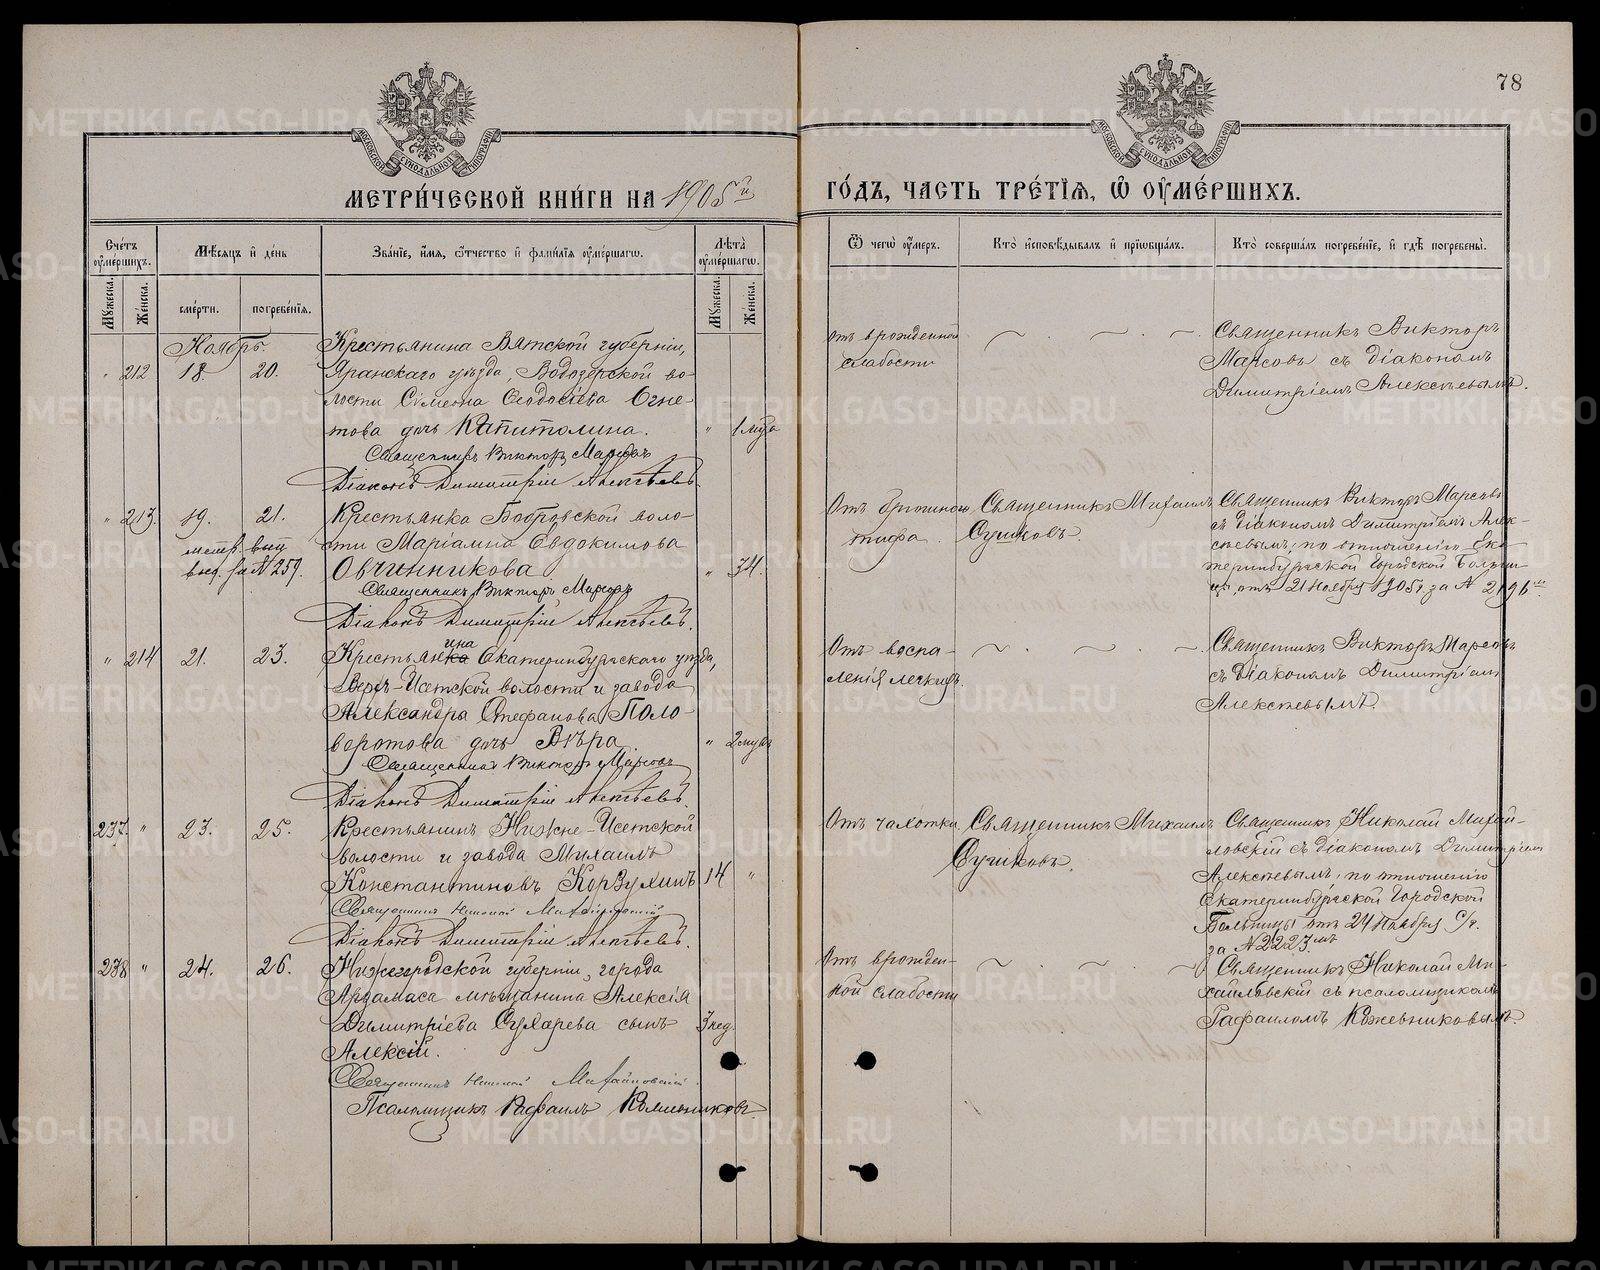 78
МОСКОВСКОЙ СУНОДАЛЬНОЙ ТИПОГРАФІИ
МОСКОВСКОЙ СУНОДАЛЬНОЙ ТИПОГРАФІИ
МЕТРИ́ЧЕСКОЙ КНИ́ГИ НА 1905й
ГО́ДЪ, ЧАСТЬ ТРЕ́ТІѦ, Ѽ ОУМЕ́РШИХЪ.
Сче́тъ оумѐршихъ.
Мѣсяцъ и҆ де́нь
Зва́нїе, и҆́мѧ, ѻ҆́тчество и҆ фами́лїѧ оумѐршагѡ.
Лѣ́та оумѐршагѡ.
Ѿ чегѡ̀ оу҆́меръ.
Кто̀ и҆сповѣ́дывалъ и҆ прїѡбща́лъ.
Кто̀ соверша́лъ погребе́нїе, и҆ гдѣ̀ погребены̀.
Мꙋ́жеска.
Же́нска.
сме́рти.
погребе́нїѧ.
Мꙋ́жеска.
Же́нска.
Ноябрь.
Крестьянина Вятской губерніи,
" 212 18. 20. Яранскаго уѣзда, Водозерской во-
лости Сѵмеона Ѳеодосіева Огне-
това дочь Капитолина. " 1 мца
Священникъ Викторъ Марсовъ
Діаконъ Димитрій Алексѣевъ.
отъ врожденной
слабости
Священникъ Викторъ
Марсовъ съ діакономъ
Димитріемъ Алексѣевымъ.
" 213. 19. 21. Крестьянка Бобровской воло-
метр. вып. сти Маріамна Евдокимова
выд. за № 259. Овчинникова " 34.
Священникъ Викторъ Марсовъ
Діаконъ Димитрій Алексѣевъ.
Отъ брюшного
тифа.
Священникъ Михаилъ
Сушковъ.
Священникъ Викторъ Марсовъ
съ діакономъ Димитріемъ Алек-
сѣевымъ, по отношенію Ека-
теринбургской Городской Больни-
цы, отъ 21 Ноября 1905 г. за № 2196
" 214 21. 23. Крестьянина Екатеринбургскаго уѣзда,
Верхъ-Исетской волости и завода
Александра Стефанова Поло-
воротова дочь Вѣра. " 2 мцвъ
Священникъ Викторъ Марсовъ
Діаконъ Димитрій Алексѣевъ.
Отъ воспа-
ленія легкихъ.
Священникъ Викторъ Марсовъ
съ діакономъ Димитріемъ
Алексѣевымъ.
237. " 23. 25. Крестьянинъ Нижне-Исетской
волости и завода Михаилъ
Константиновъ Корзухинъ 14 "
Священникъ Николай Михайловскій
Діаконъ Димитрій Алексѣевъ.
Отъ чахотки
Священникъ Михаилъ
Сушковъ.
Священникъ Николай Михай-
ловскій съ діакономъ Димитріемъ
Алексѣевымъ, по отношенію
Екатеринбургской Городской
Больницы отъ 24 Ноября с/г.
за № 2223мъ
238 " 24. 26. Нижегородской губерніи, города
Арзамаса мѣщанина Алексія
Димитріева Сухарева сынъ 3 нед.
Алексій.
Священникъ Николай Михайловскій
Псаломщикъ Рафаилъ Кожевниковъ
Отъ врожден-
ной слабости
Священникъ Николай Ми-
хайловскій съ псаломщикомъ
Рафаиломъ Кожевниковымъ.
METRIKI.GASO-URAL.RU